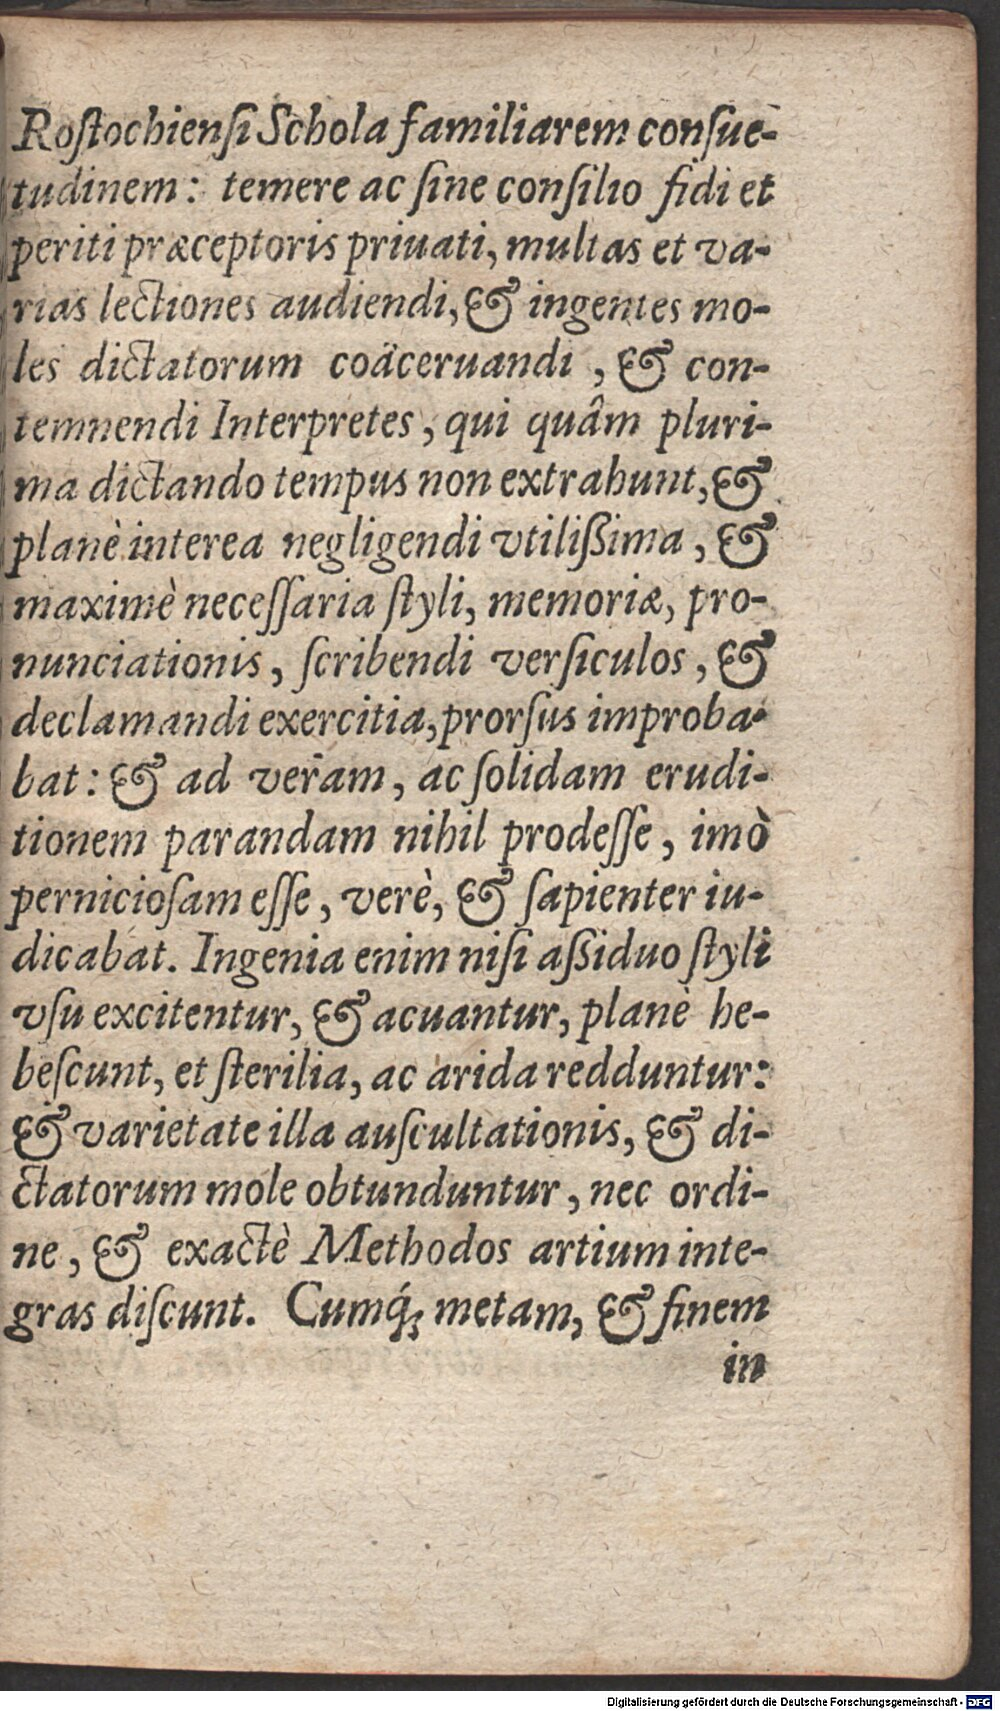 Roſtochienſi Schola familiarem conſue-
tudinem: temere ac ſine conſilio fidi et
periti præceptoris priuati, multas et va-
rias lectiones audiendi, & ingentes mo-
les dictatorum coäceruandi, & con-
temnendi Interpretes, qui quâm pluri-
ma dictando tempus non extrahunt, &
planè interea negligendi vtilißima, &
maximè neceſſaria ſtyli, memoriæ, pro-
nunciationis, ſcribendi verſiculos, &
declamandi exercitia, prorſus improba-
bat: & ad veram, ac ſolidam erudi-
tionem parandam nihil prodeſſe, imò
pernicioſam eſſe, verè, & ſapienter iu-
dicabat. Ingenia enim niſi aßiduo ſtyli
vſu excitentur, & acuantur, planè he-
beſcunt, et ſterilia, ac arida redduntur:
& varietate illa auſcultationis, & di-
ctatorum mole obtunduntur, nec ordi-
ne, & exactè Methodos artium inte-
gras diſcunt. Cumq́; metam, & finem
in
Digitalisierung gefördert durch die Deutsche Forschungsgemeinschaft - DFG